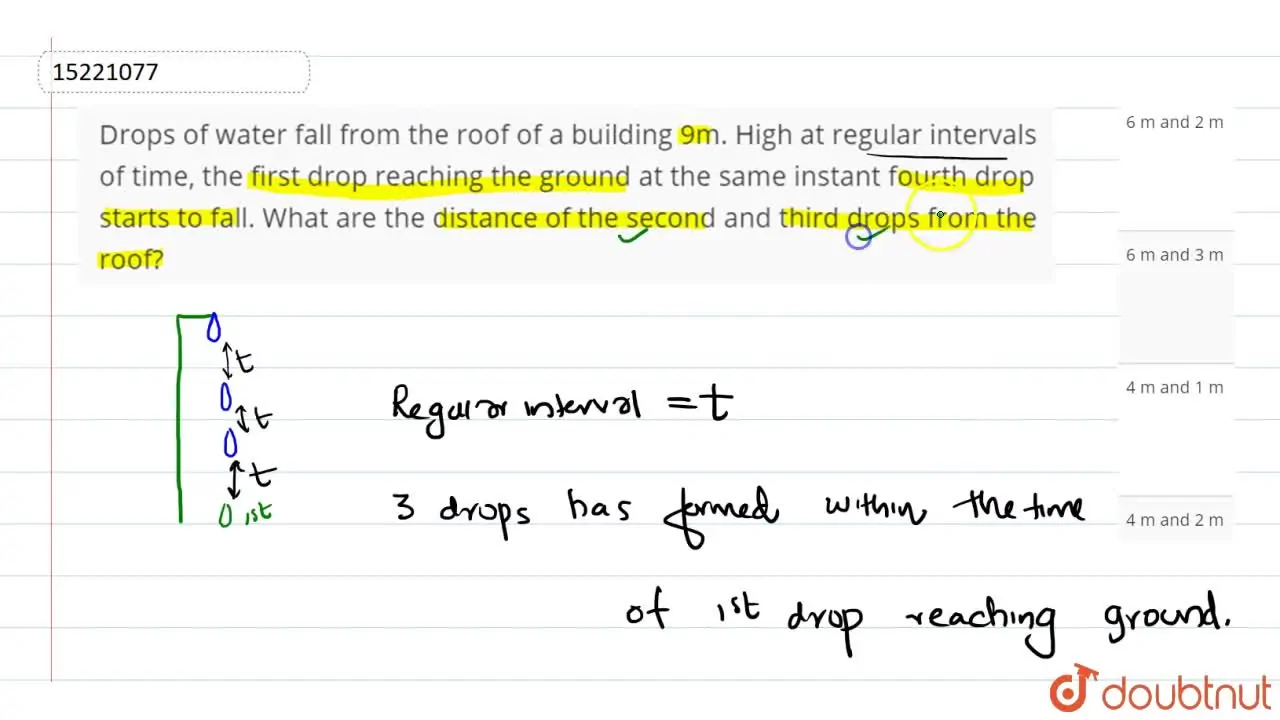 15221077
Drops of water fall from the roof of a building 9m. High at regular intervals
of time, the first drop reaching the ground at the same instant fourth drop
starts to fall. What are the distance of the second and third drops from the
roof?
6 m and 2 m
6 m and 3 m
4 m and 1 m
4 m and 2 m
t
t
t
1st
Regular interval = t
3 drops has formed within the time
of 1st drop reaching ground.
doubtnut